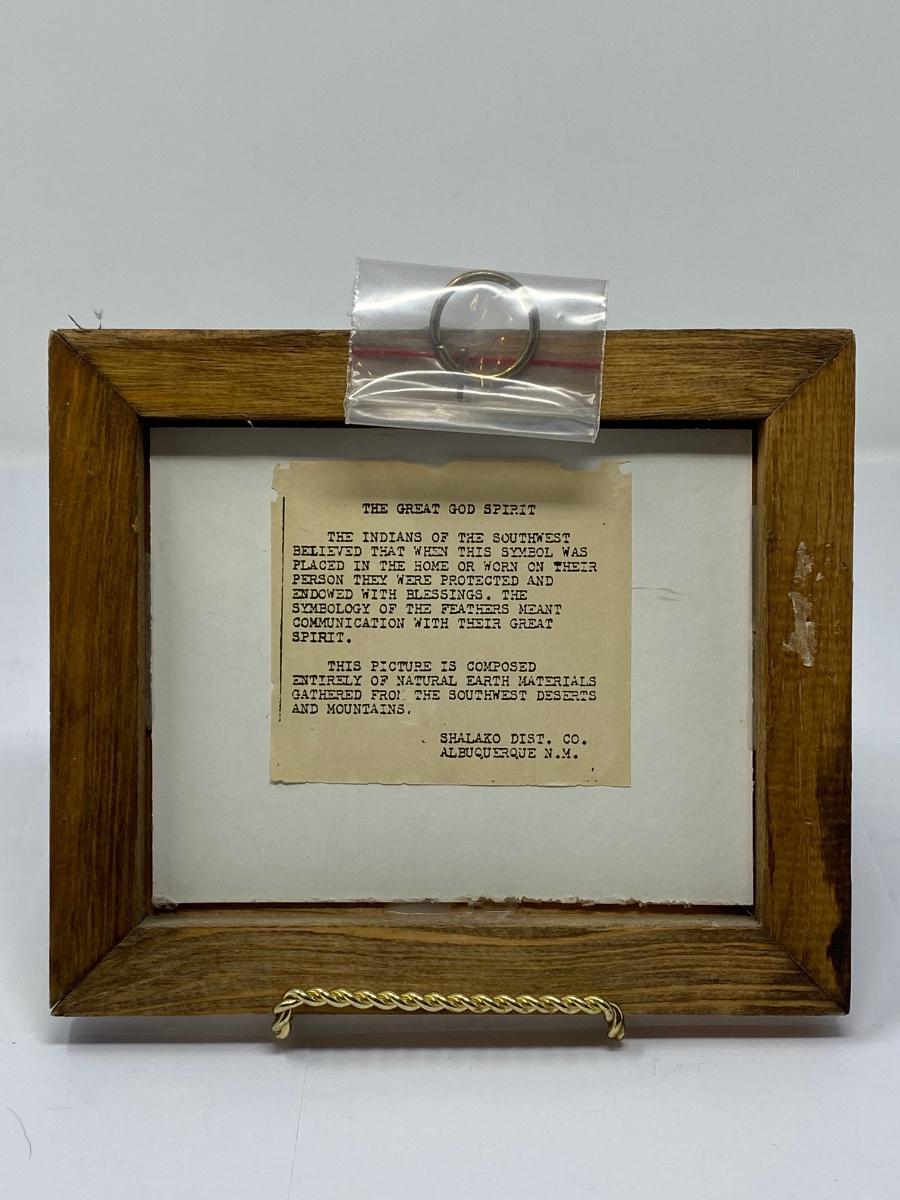 THE GREAT GOD SPIRIT
THE INDIANS OF THE SOUTHWEST
BELIEVED THAT WHEN THIS SYMBOL WAS
PLACED IN THE HOME OR WORN ON THEIR
PERSON THEY WERE PROTECTED AND
ENDOWED WITH BLESSINGS. THE
SYMBOLOGY OF THE FEATHERS MEANT
COMMUNICATION WITH THEIR GREAT
SPIRIT.
THIS PICTURE IS COMPOSED
ENTIRELY OF NATURAL EARTH MATERIALS
GATHERED FROM THE SOUTHWEST DESERTS
AND MOUNTAINS.
SHALAKO DIST. CO.
ALBUQUERQUE N.M.